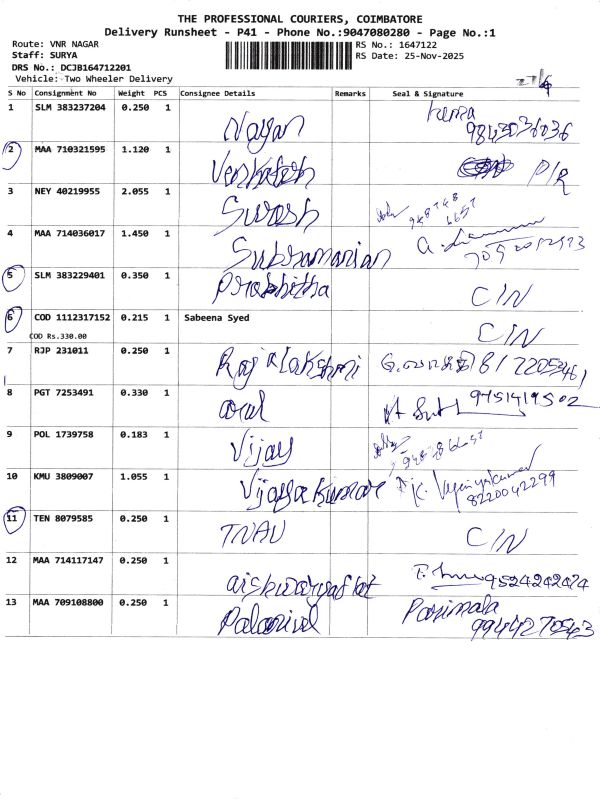 THE PROFESSIONAL COURIERS, COIMBATORE
Delivery Runsheet - P41 - Phone No.:9047080280 - Page No.:1
Route: VNR NAGAR RS No.: 1647122
Staff: SURYA RS Date: 25-Nov-2025
DRS No.: DCJB164712201
Vehicle: Two Wheeler Delivery
S No Consignment No Weight PCS Consignee Details Remarks Seal & Signature
1 SLM 383237204 0.250 1 Nayan
2 MAA 710321595 1.120 1 Venkatesh P/R
3 NEY 40219955 2.055 1 Suresh
4 MAA 714036017 1.450 1 Subramanian
5 SLM 383229401 0.350 1 Prabhitha C/N
6 COD 1112317152 0.215 1 Sabeena Syed C/N
COD Rs.330.00
7 RJP 231011 0.250 1 Rajalakshmi
8 PGT 7253491 0.330 1 arul 9751419502
9 POL 1739758 0.183 1 Vijay
10 KMU 3809007 1.055 1 Vijayakumar K. 8220042299
11 TEN 8079585 0.250 1 TNAU C/N
12 MAA 714117147 0.250 1 9524242424
13 MAA 709108800 0.250 1 Palanivel Parimala
9944270543